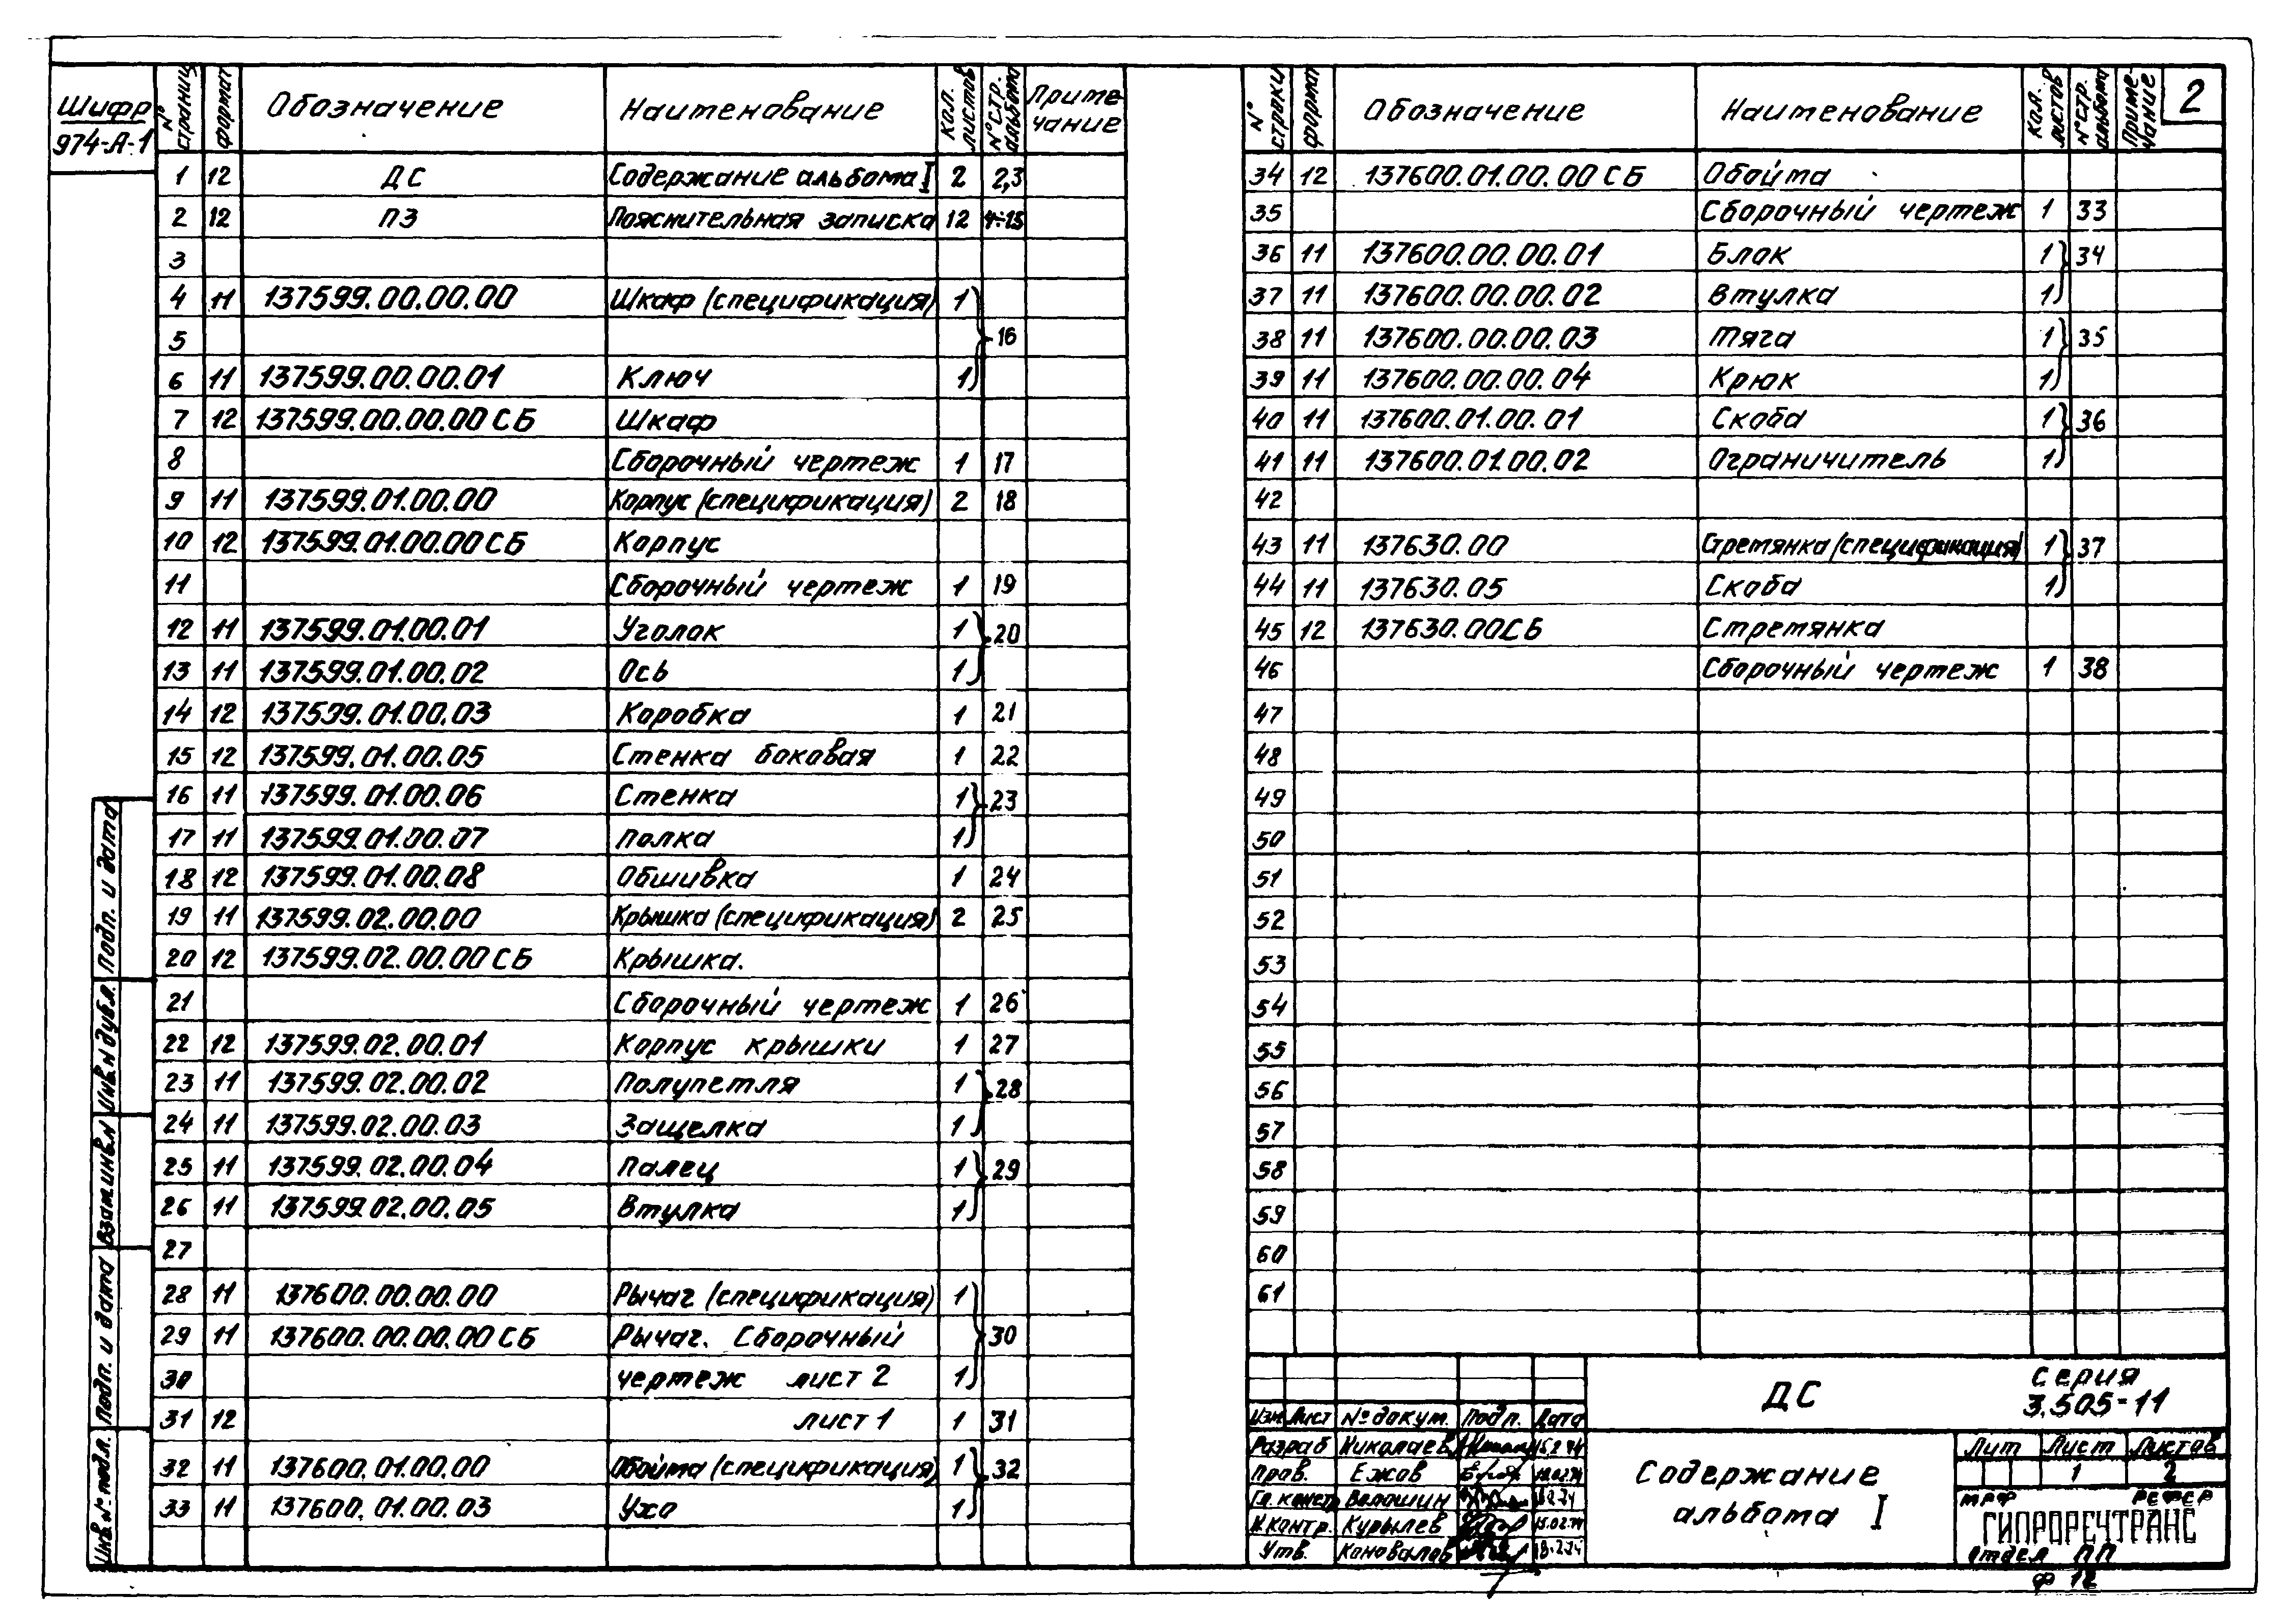 Шифр
974-А-1
№ страниц формат Обозначение Наименование Кол. листов № стр. альбома Примечание
1 12 ДС Содержание альбома I 2 2,3
2 12 ПЗ Пояснительная записка 12 4÷15
3
4 11 137599.00.00.00 Шкаф (спецификация) 1
5 16
6 11 137599.00.00.01 Ключ 1
7 12 137599.00.00.00 СБ Шкаф
8 Сборочный чертеж 1 17
9 11 137599.01.00.00 Корпус (спецификация) 2 18
10 12 137599.01.00.00 СБ Корпус
11 Сборочный чертеж 1 19
12 11 137599.01.00.01 Уголок 1 20
13 11 137599.01.00.02 Ось 1
14 12 137599.01.00.03 Коробка 1 21
15 12 137599.01.00.05 Стенка боковая 1 22
16 11 137599.01.00.06 Стенка 1 23
17 11 137599.01.00.07 Полка 1
18 12 137599.01.00.08 Обшивка 1 24
19 11 137599.02.00.00 Крышка (спецификация) 2 25
20 12 137599.02.00.00 СБ Крышка.
21 Сборочный чертеж 1 26
22 12 137599.02.00.01 Корпус крышки 1 27
23 11 137599.02.00.02 Полупетля 1 28
24 11 137599.02.00.03 Защелка 1
25 11 137599.02.00.04 Палец 1 29
26 11 137599.02.00.05 Втулка 1
27
28 11 137600.00.00.00 Рычаг (спецификация) 1
29 11 137600.00.00.00 СБ Рычаг. Сборочный 30
30 чертеж лист 2 1
31 12 лист 1 1 31
32 11 137600.01.00.00 Обойма (спецификация) 1 32
33 11 137600.01.00.03 Ухо 1
Подп. и дата
Инв. N дубл.
Взам. инв. N
Подп. и дата
Инв. № подл.
№ строки форма Обозначение Наименование Кол. листов № стр. альбома Примечание 2
34 12 137600.01.00.00 СБ Обойма
35 Сборочный чертеж 1 33
36 11 137600.00.00.01 Блок 1 34
37 11 137600.00.00.02 Втулка 1
38 11 137600.00.00.03 Тяга 1 35
39 11 137600.00.00.04 Крюк 1
40 11 137600.01.00.01 Скоба 1 36
41 11 137600.01.00.02 Ограничитель 1
42
43 11 137630.00 Стремянка (спецификация) 1 37
44 11 137630.05 Скоба 1
45 12 137630.00СБ Стремянка
46 Сборочный чертеж 1 38
47
48
49
50
51
52
53
54
55
56
57
58
59
60
61
ДС Серия
3.505-11
Изм. Лист № докум. Подп. Дата
Разраб Николаев
Пров. Ежов
Гл. констр Волошин
Н.контр. Курылев 15.02.74
Утв. Коновалов 18.2.74
Содержание
альбома I
Лит Лист Листов
1 2
МРФ РСФСР
ГИПРОРЕЧТРАНС
Отдел ПП
Ф 12